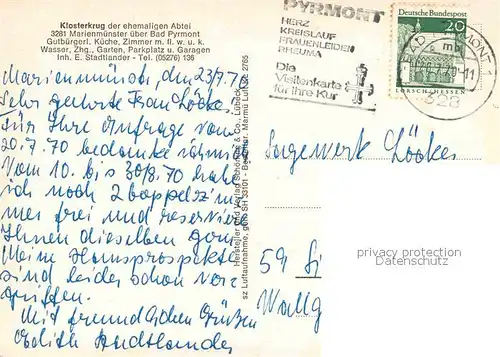 Klosterkrug der ehemaligen Abtei
3281 Marienmünster über Bad Pyrmont
Gutbürgerl. Küche, Zimmer m. fl. w. u. k.
Wasser, Zhg., Garten, Parkplatz u. Garagen
Inh. E. Stadtlander - Tel. (05276) 136
Marienmünster, den 23/7.70
Sehr geehrte Frau Lööke,
für Ihre Anfrage vom
20.7.70 bedanke ich mich
Vom 10. bis 30/8.70 habe
ich noch 2 Doppelzim
mer frei und reserviere
Ihnen dieselben gern
Meine Hausprospekte
sind leider schon ver
griffen.
Mit freundlichen Grüßen
Edith Stadtlander
Hersteller und Verlag Schöning & Co., Lübeck
PYRMONT
HERZ
KREISLAUF
FRAUENLEIDEN
RHEUMA
Die
Visitenkarte
für Ihre Kur
Deutsche Bundespost
20
LORSCH/HESSEN
328
Sägewerk Lööke
59 Si
Wallg
privacy protection
Datenschutz